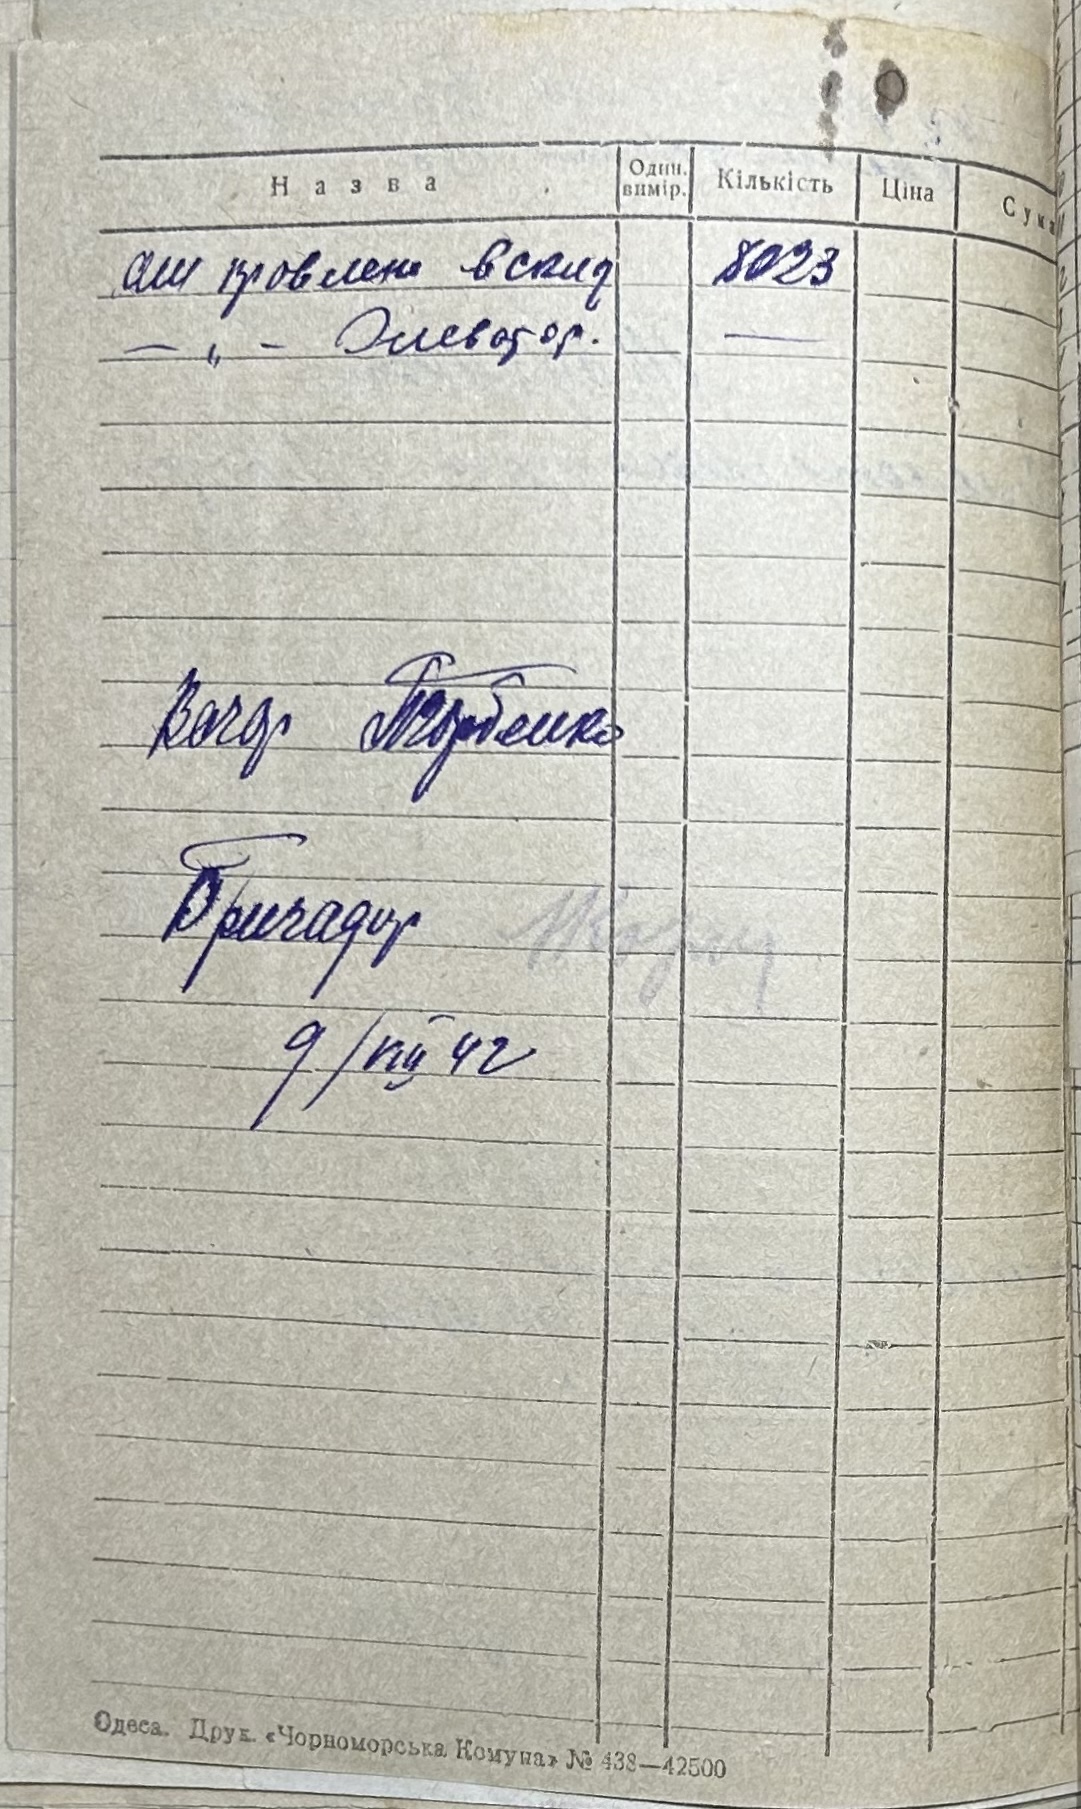 Назва Один. вимір. Кількість Ціна Сума
в склад 8023
— „ — Элеватор. —
Вагар Торбенко
Бригадир
9/VIII 42
Одеса. Друк. «Чорноморська Комуна» № 438—42500